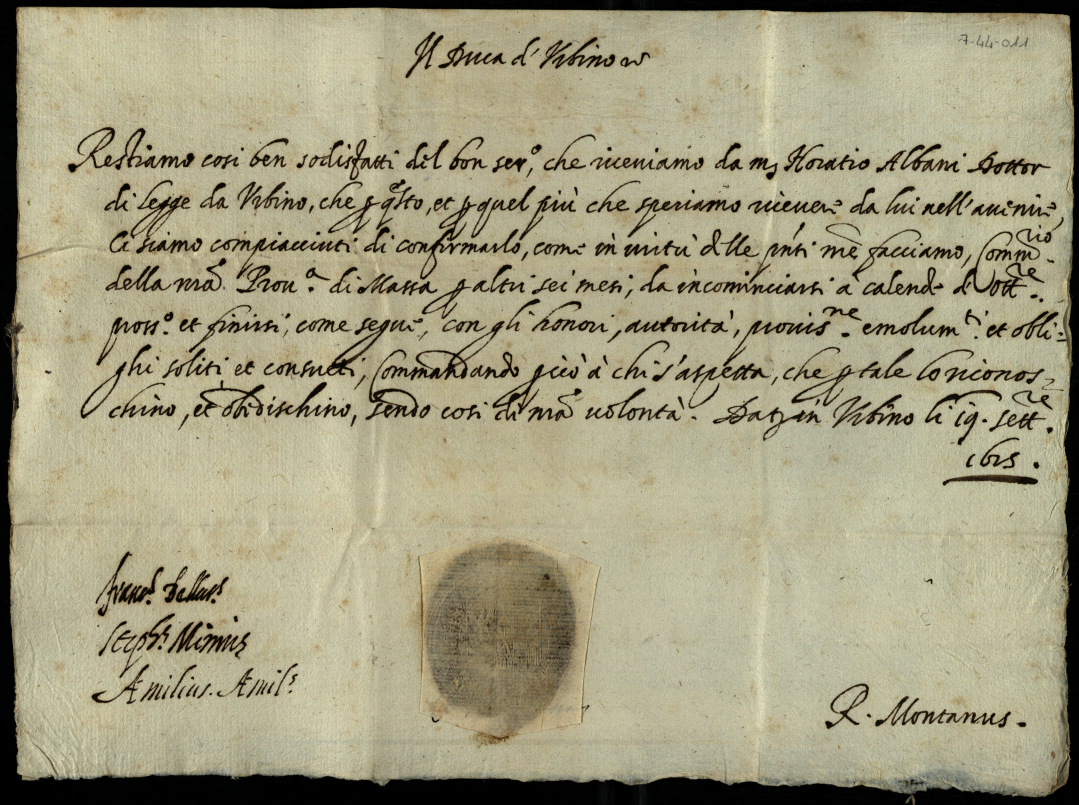 7-44-011
Il Duca d'Vrbino
Restiamo cosi ben sodisfatti del bon ser.º, che riceviamo da m Horatio Albani Dottor
di legge da Vrbino, che p qsto, et p quel più che speriamo ricevere da lui nell'auenire,
Ci siamo compiacciuti di confirmarlo, come in virtù delle pnti nre facciamo, Comm.rio
della nra Prou.ª di Massa p altri sei mesi, da incominciarsi à calende d'Ott.re
pross.º et finirsi, come segue, con gli honori, autorità, prouis.ne emolum.ti et obli=
ghi soliti et consueti, Commandando p ciò à chi s'aspetta, che p tale lo riconos=
chino, et obedischino, sendo così di nra volontà. Dat in Vrbino li 19. Sett.re
1615.
Steph.s
Æmilius. Æmil.s
R. Montanus.